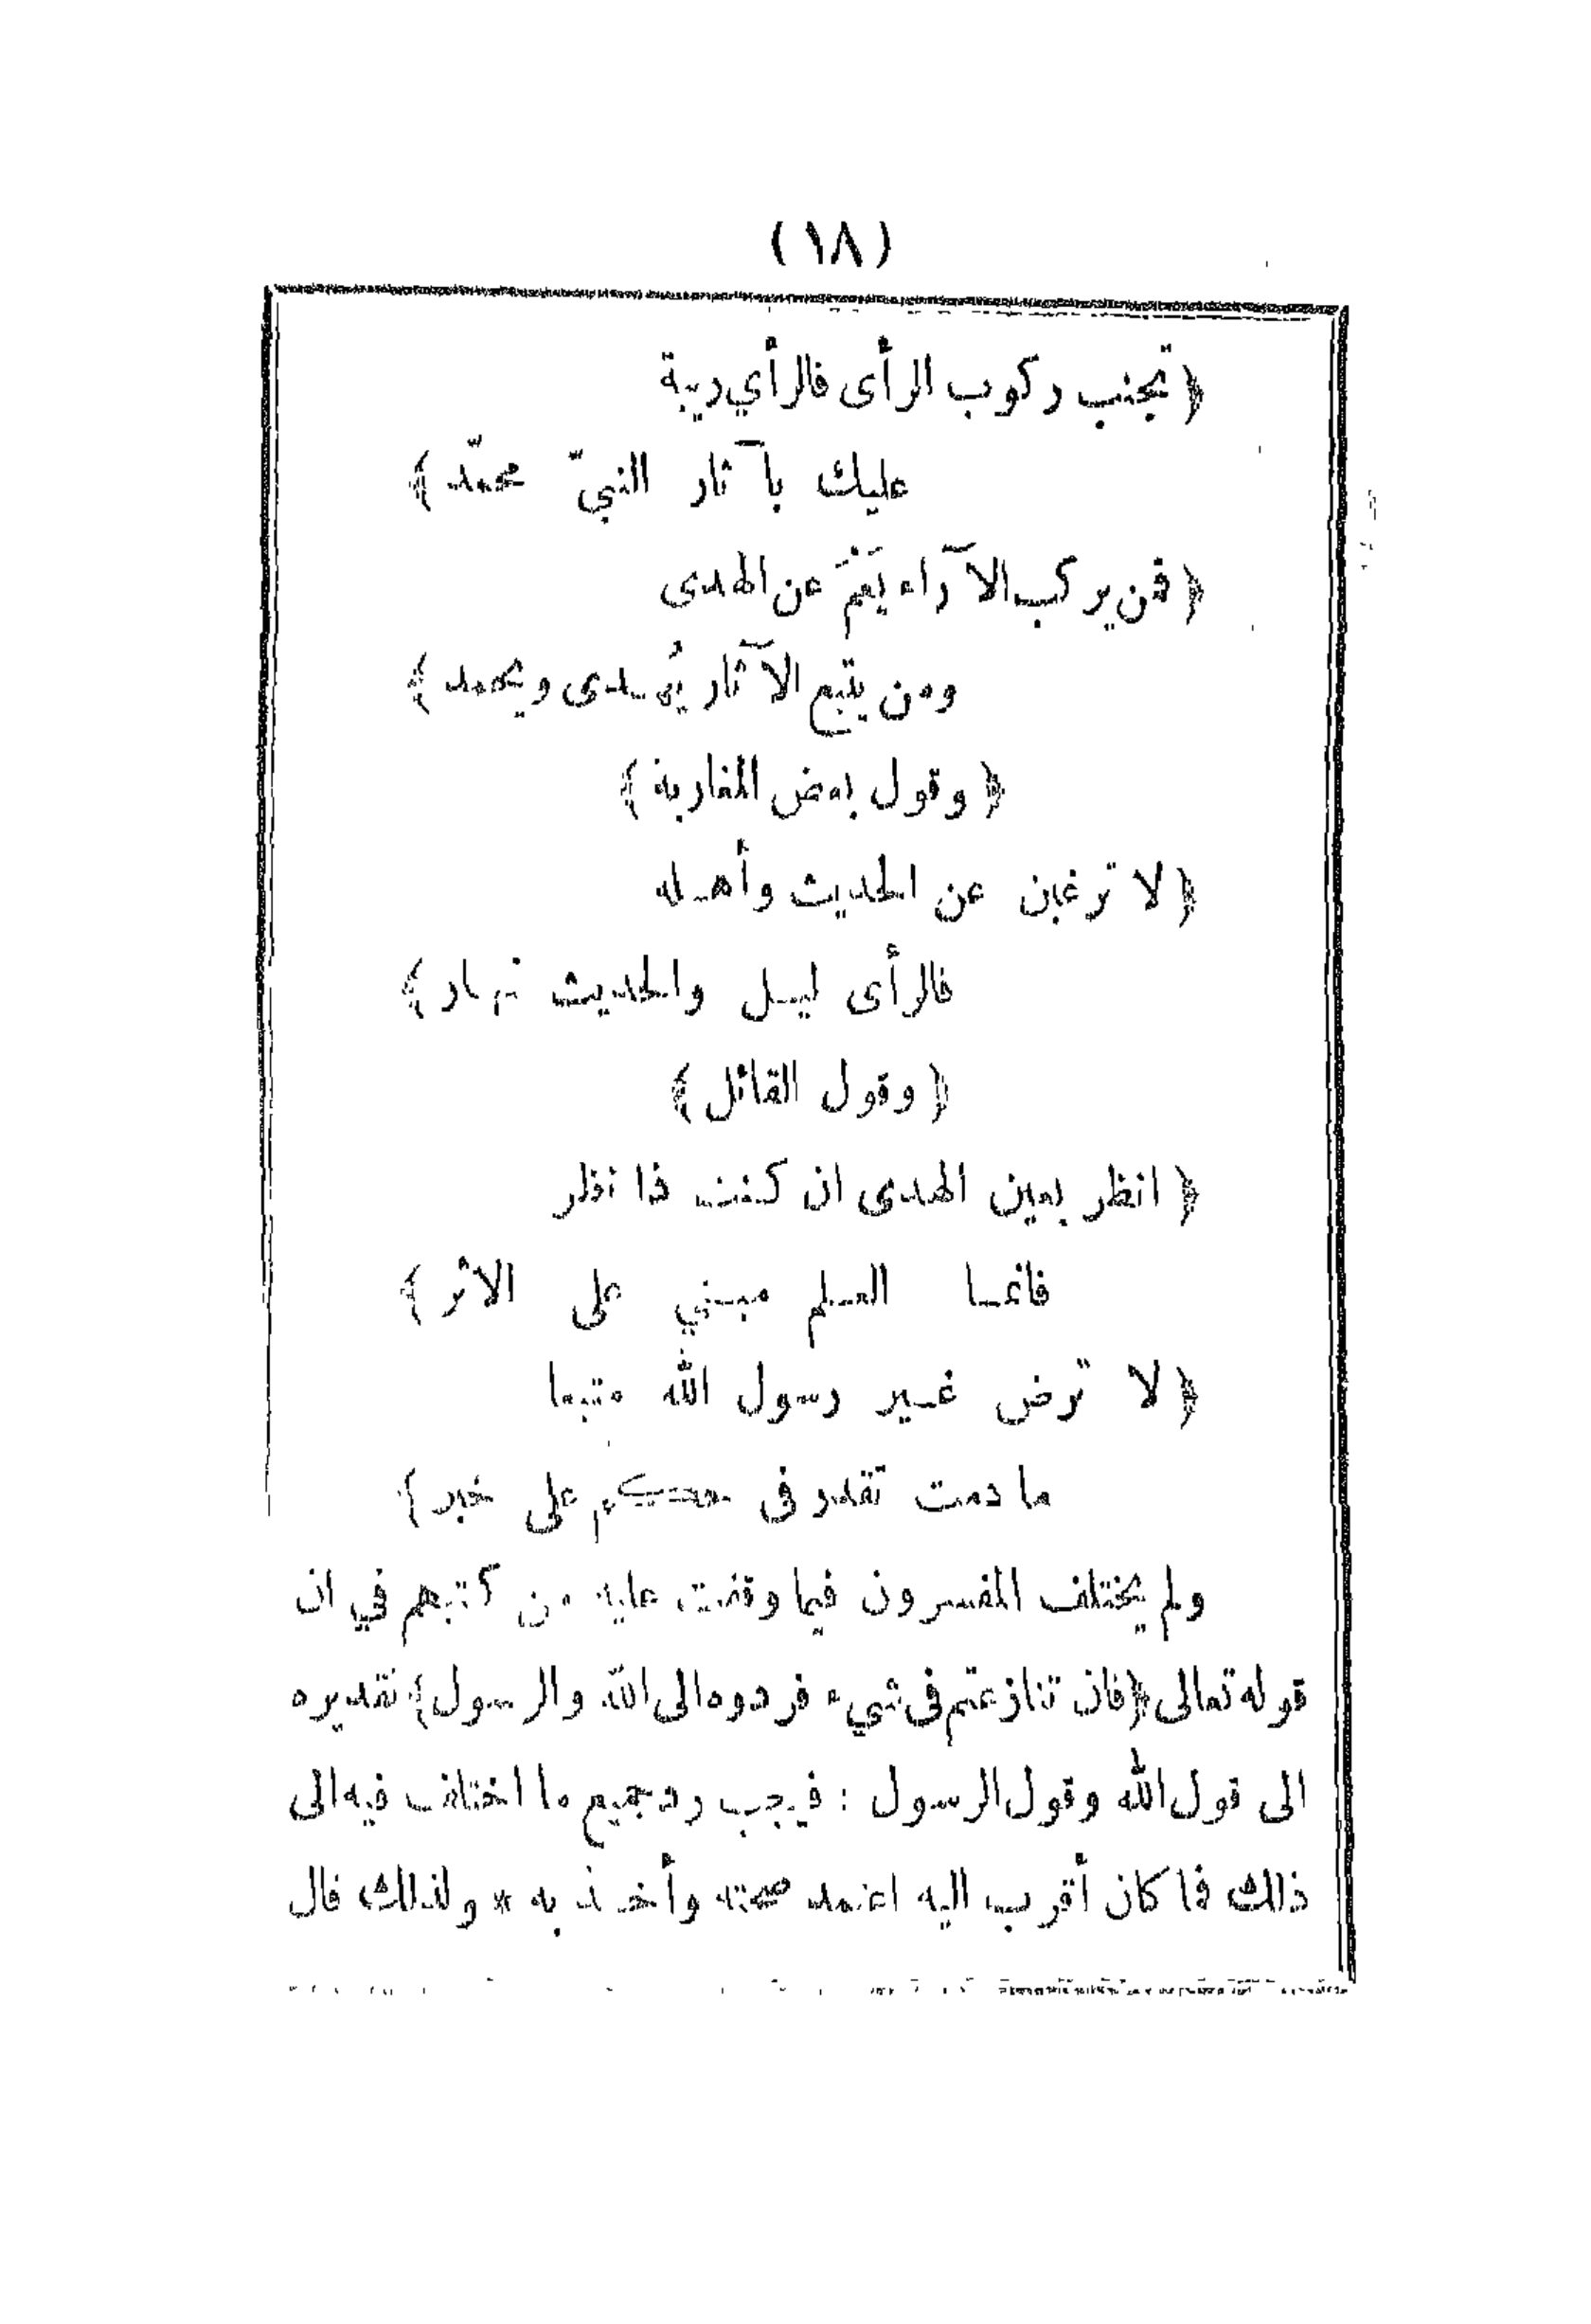 (١٨)
﴿ تجنب ركوب الرأى فالرأي ريبة
عليك بآثار النبيّ محمّد ﴾
﴿ فمن يركب الآراء يَعْمَ عن الهدى
ومن يتبع الآثار يُهدى ويحمد ﴾
﴿ وقول بعض المغاربة ﴾
﴿ لا ترغبن عن الحديث وأهله
فالرأى ليل والحديث نهار ﴾
﴿ وقول القائل ﴾
﴿ انظر بعين الهدى ان كنت ذا نظر
فانما العلم مبني على الاثر ﴾
﴿ لا ترض غير رسول الله متبعا
ما دمت تقدر فى حكم على خبر ﴾
ولم يختلف المفسرون فيما وقفت عليه من كتبهم في ان
قوله تعالى ﴿فان تنازعتم فى شيء فردوه الى الله والرسول﴾ تقديره
الى قول الله وقول الرسول : فيجب رد جميع ما اختلف فيه الى
ذلك فما كان أقرب اليه اعتمد صحته وأخذ به * ولذلك قال